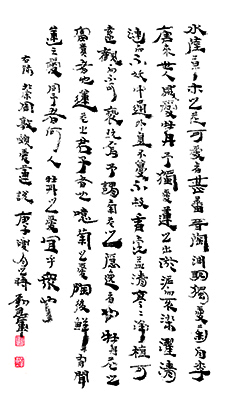 水陸草木之花可愛者甚蕃晉陶淵明獨愛菊自李
唐來世人盛愛牡丹予獨愛蓮之出淤泥而不染濯清
漣而不妖中通外直不蔓不枝香遠益清亭亭淨植可
遠觀而不可褻玩焉予謂菊花之隱逸者也牡丹花之
富貴者也蓮花之君子者也噫菊之愛陶後鮮有聞
蓮之愛同予者何人牡丹之愛宜乎衆矣
右錄北宋周敦頤愛蓮說 庚子